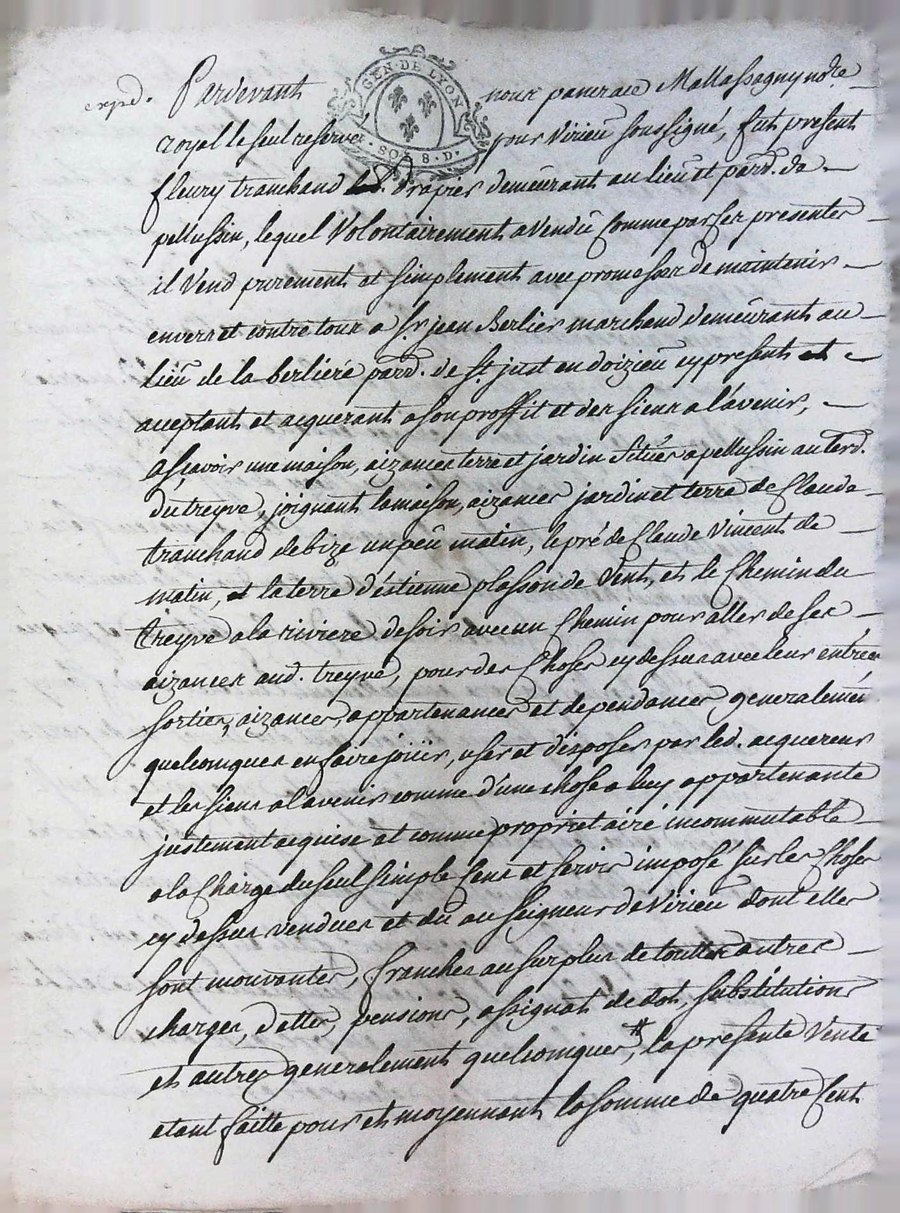 expd. Pardevant nous pancrace Mallassagny no.re
GEN. DE LYON
SOLS 8. D.
royal le seul reservé pour Virieu soussigné, fut present
fleury tranchand drapier demeurant au lieu et par.d de
pellussin, lequel Volontairement a Vendu Comme par ses presentes
il Vend purement et simplement avec promesse de maintenir
envers et contre tous a Sr. jean Berlier marchend demeurant au
lieu de la berliere par.d de St. just en doizieu cy present et
acceptant et acquerant a son proffit et des siens a l'avenir,
asçavoir une maison, aizances terre et jardin Situés a pellussin au terd.
du treyve, joignant la maison, aizances jardin et terre de Claude
tranchand de bize un peu matin, le pré de Claude Vincent de
matin, et la terre d'étienne plasson de Vent, et le Chemin du
treyve a la riviere de soir avec un Chemin pour aller de ses
aizances aud. treyve, pour des Choses cy dessus avec leurs entrées
sorties, aizances, appartenances et dependances generalement
quelconques en faire joüir, user et disposer par led. acquereur
et les siens a l'avenir comme d'une chose a luy appartenante
justement acquise et comme proprietaire incommutable
a la Charge du seul simple Cens et servis imposé sur les Choses
cy dessus vendues et du au seigneur de Virieu dont elles
sont mouvantes, franches au surplus de touttes autres
charges, dettes, pensions, assignat de dot, substitutions
et autres generalement quelconques, # la presente Vente
etant faitte pour et moyennant la somme de quatre Cent